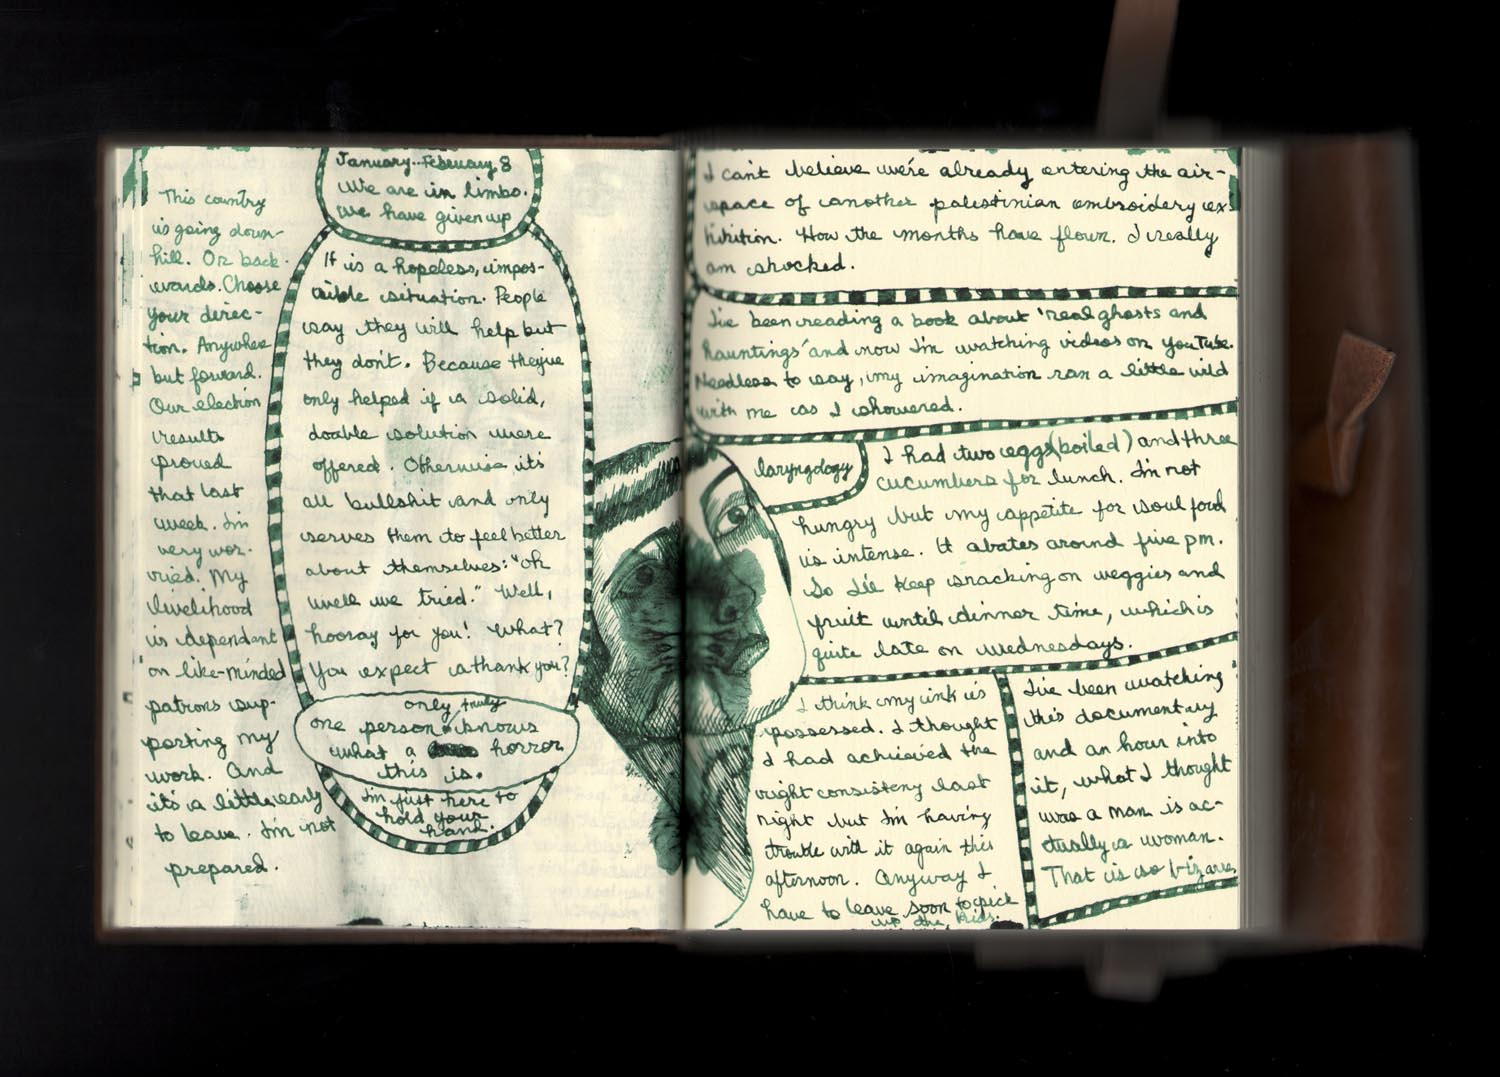 This country
is going down-
hill. Or back-
wards. Choose
your direc-
tion. Anywhere
but forward.
Our election
results
proved
that last
week. I'm
very wor-
ried. My
livelihood
is dependant
on like-minded
patrons sup-
porting my
work. And
it's a little early
to leave. I'm not
prepared.
January-February 8
We are in limbo.
We have given up
It is a hopeless, impos-
sible situation. People
say they will help but
they don't. Because they're
only helped if a solid,
doable solution were
offered. Otherwise, it's
all bullshit and only
serves them to feel better
about themselves: "oh
well we tried." Well,
hooray for you! What?
You expect a thank you?
only truly
one person knows
what a horror
this is.
I'm just here to
hold your
hand.
I can't believe we're already entering the air-
space of another palestinian embroidery ex-
hibition. How the months have flown. I really
am shocked.
I've been reading a book about 'real ghosts and
hauntings' and now I'm watching videos on YouTube.
Needless to say, my imagination ran a little wild
with me as I showered.
laryngology
I had two eggs (boiled) and three
cucumbers for lunch. I'm not
hungry but my appetite for soul food
is intense. It abates around five pm.
So I'll keep snacking on veggies and
fruit until dinner time, which is
quite late on wednesdays.
I think my ink is
possessed. I thought
I had achieved the
right consistency last
night but I'm having
trouble with it again this
afternoon. Anyway I
have to leave soon to pick
up the kids.
I've been watching
this documentary
and an hour into
it, what I thought
was a man is ac-
tually a woman.
That is so bizarre